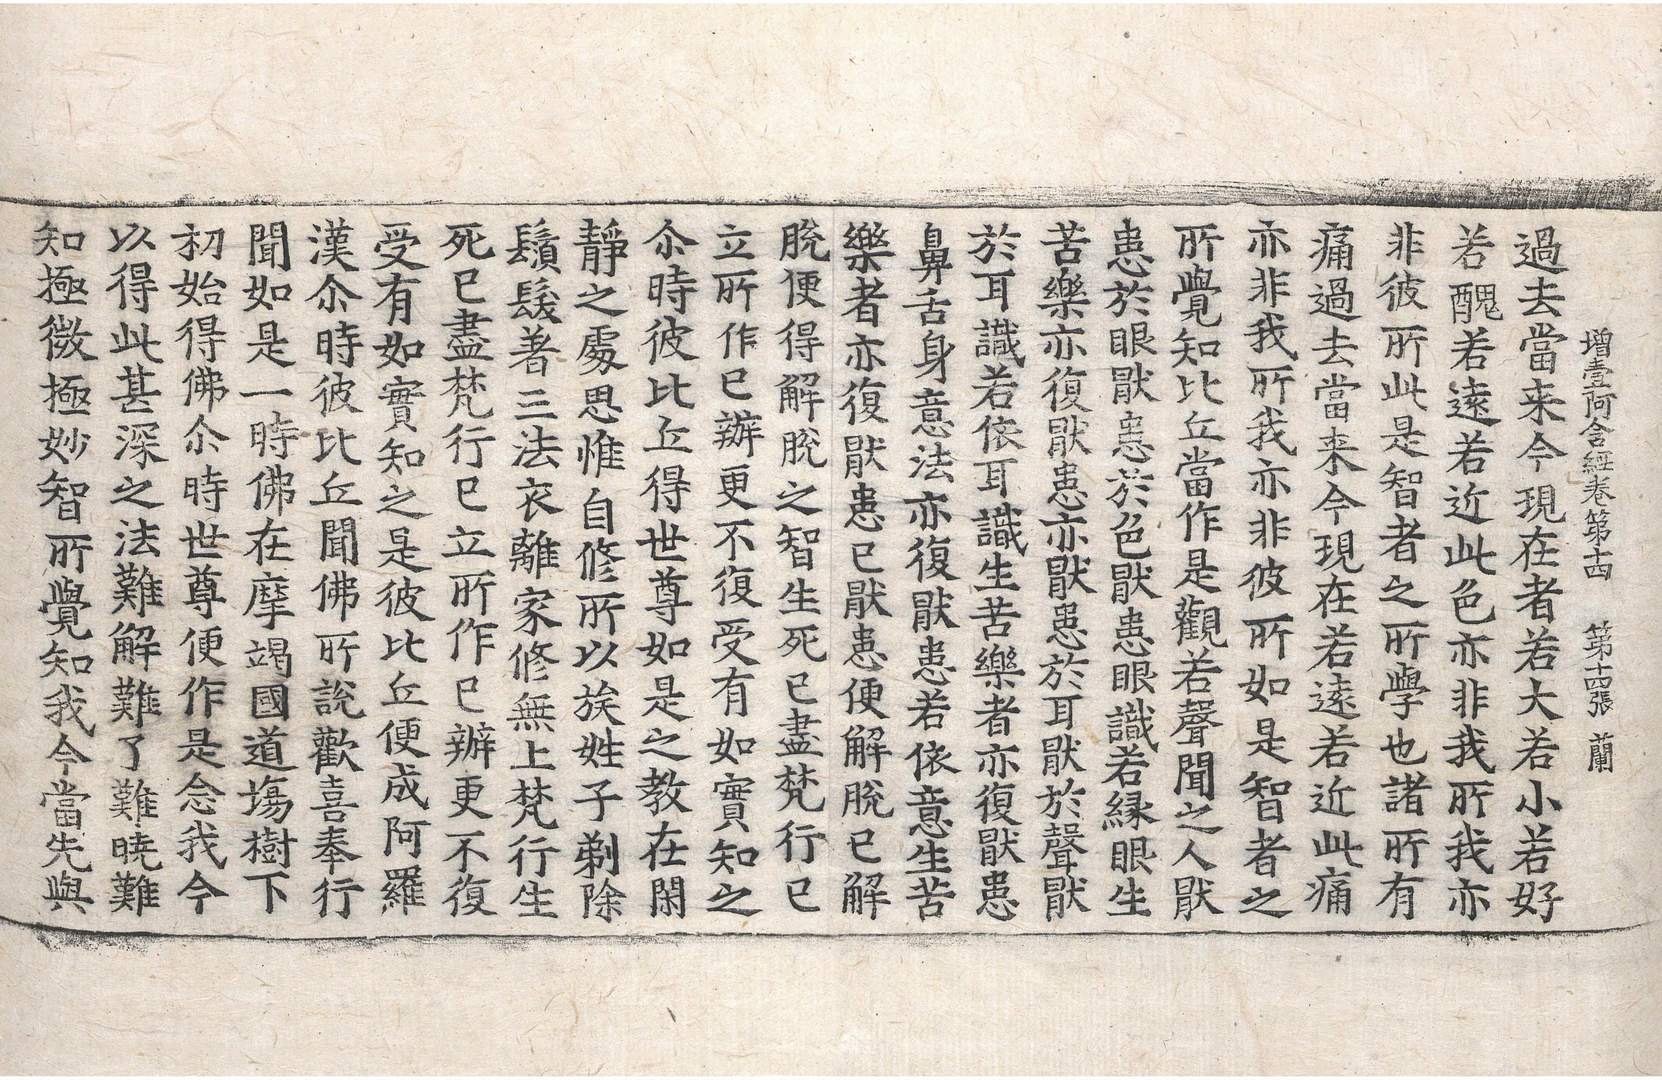 增壹阿含經卷第十四 第十四張 蘭
過去當来今現在者若大若小若好
若醜若遠若近此色亦非我所我亦
非彼所此是智者之所學也諸所有
痛過去當来今現在若遠若近此痛
亦非我所我亦非彼所如是智者之
所覺知比丘當作是觀若聲聞之人猒
患於眼猒患於色猒患眼識若縁眼生
苦樂亦復猒患亦猒患於耳猒於聲猒
於耳識若依耳識生苦樂者亦復猒患
鼻舌身意法亦復猒患若依意生苦
樂者亦復猒患已猒患便解脫已解
脫便得解脫之智生死已盡梵行已
立所作已辦更不復受有如實知之
尒時彼比丘得世尊如是之教在閑
靜之處思惟自修所以族姓子剃除
鬚髮著三法衣離家修無上梵行生
死已盡梵行已立所作已辦更不復
受有如實知之是彼比丘便成阿羅
漢尒時彼比丘聞佛所說歡喜奉行
聞如是一時佛在摩竭國道場樹下
初始得佛尒時世尊便作是念我今
以得此甚深之法難解難了難曉難
知極微極妙智所覺知我今當先與